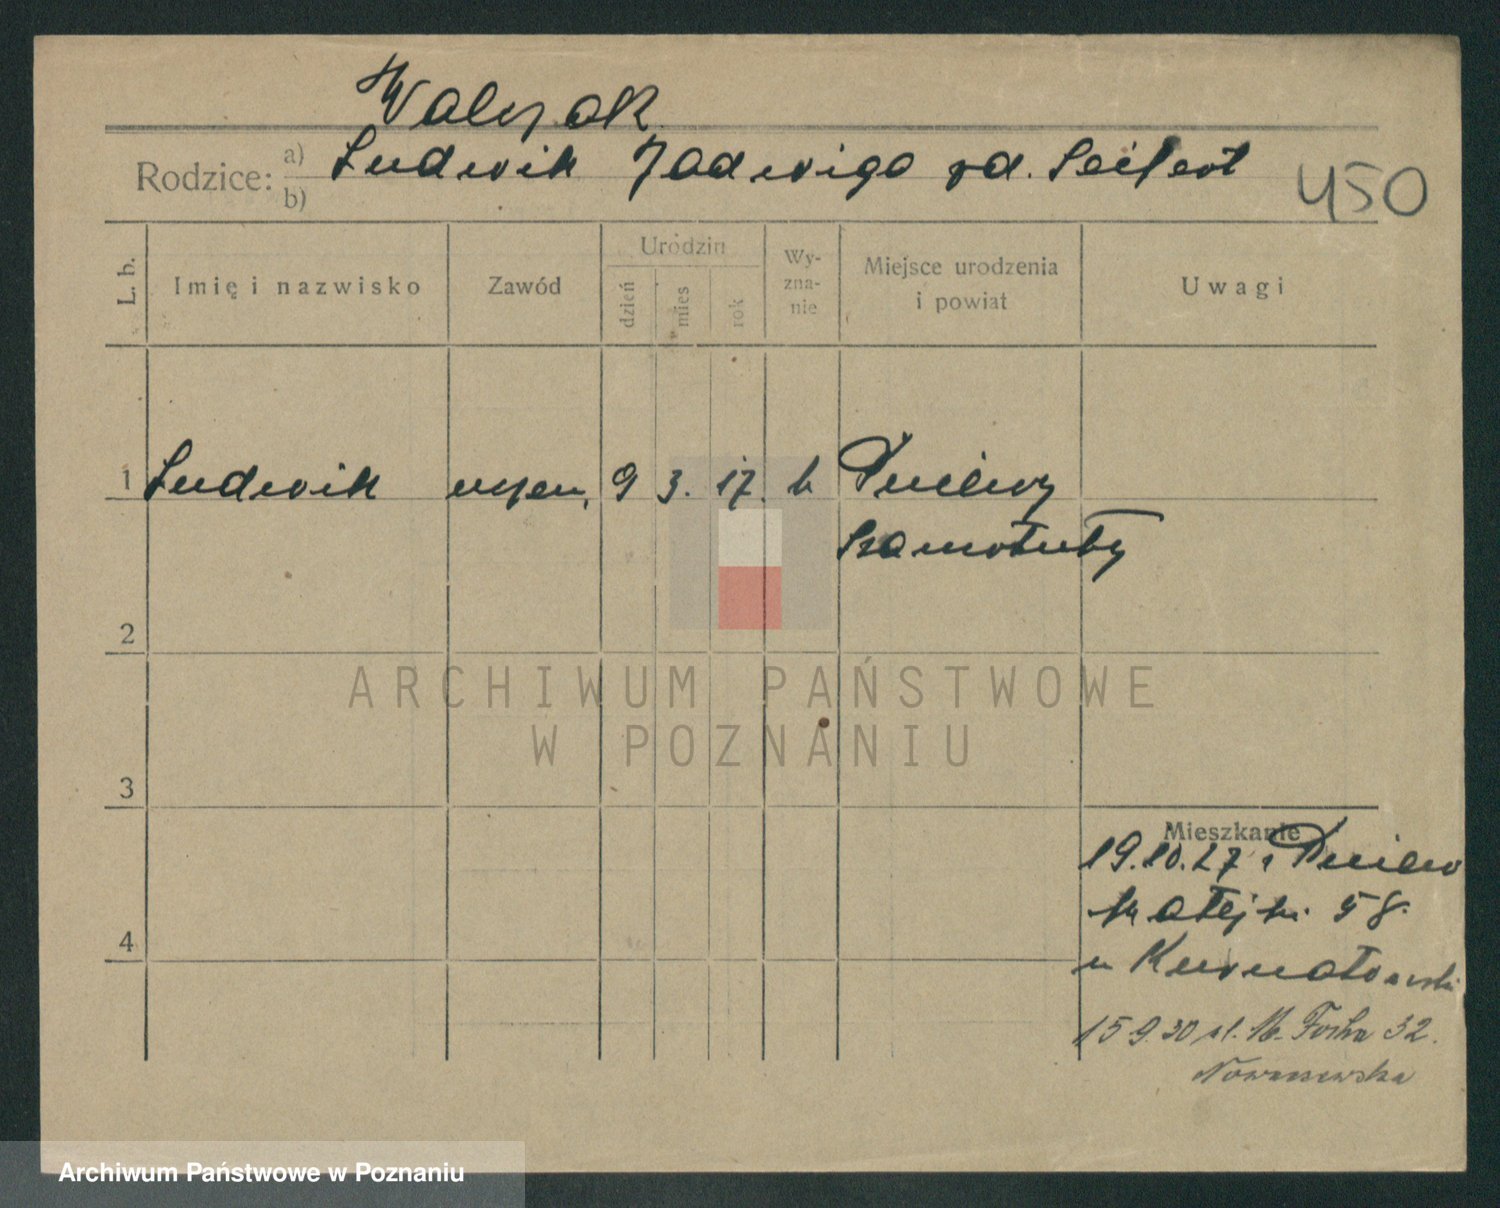 Walczak
Rodzice: a) b) Ludwik Jadwiga zd. Seifert
450
L. b. Imię i nazwisko Zawód Urodzin dzień mies rok Wyznanie Miejsce urodzenia i powiat Uwagi
1 Ludwik uczeń, 9 3. 17. k Pniewy
Szamotuły
2
ARCHIWUM PAŃSTWOWE
W POZNANIU
3
Mieszkanie
19.10.27 z Pniew
Matejki 58.
u Kurnatowski
4
15 9.30 ul. M. Focha 32.
Archiwum Państwowe w Poznaniu